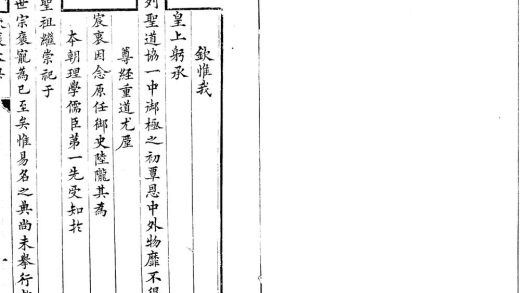 欽惟我
皇上躬承
列聖道協一中御極之初覃恩中外物靡不得
尊經重道尤廑
宸衷因念原任御史陸隴其為
本朝理學儒臣第一先受知於
聖祖繼崇祀于
世宗褒寵為已至矣惟易名之典尚未舉行